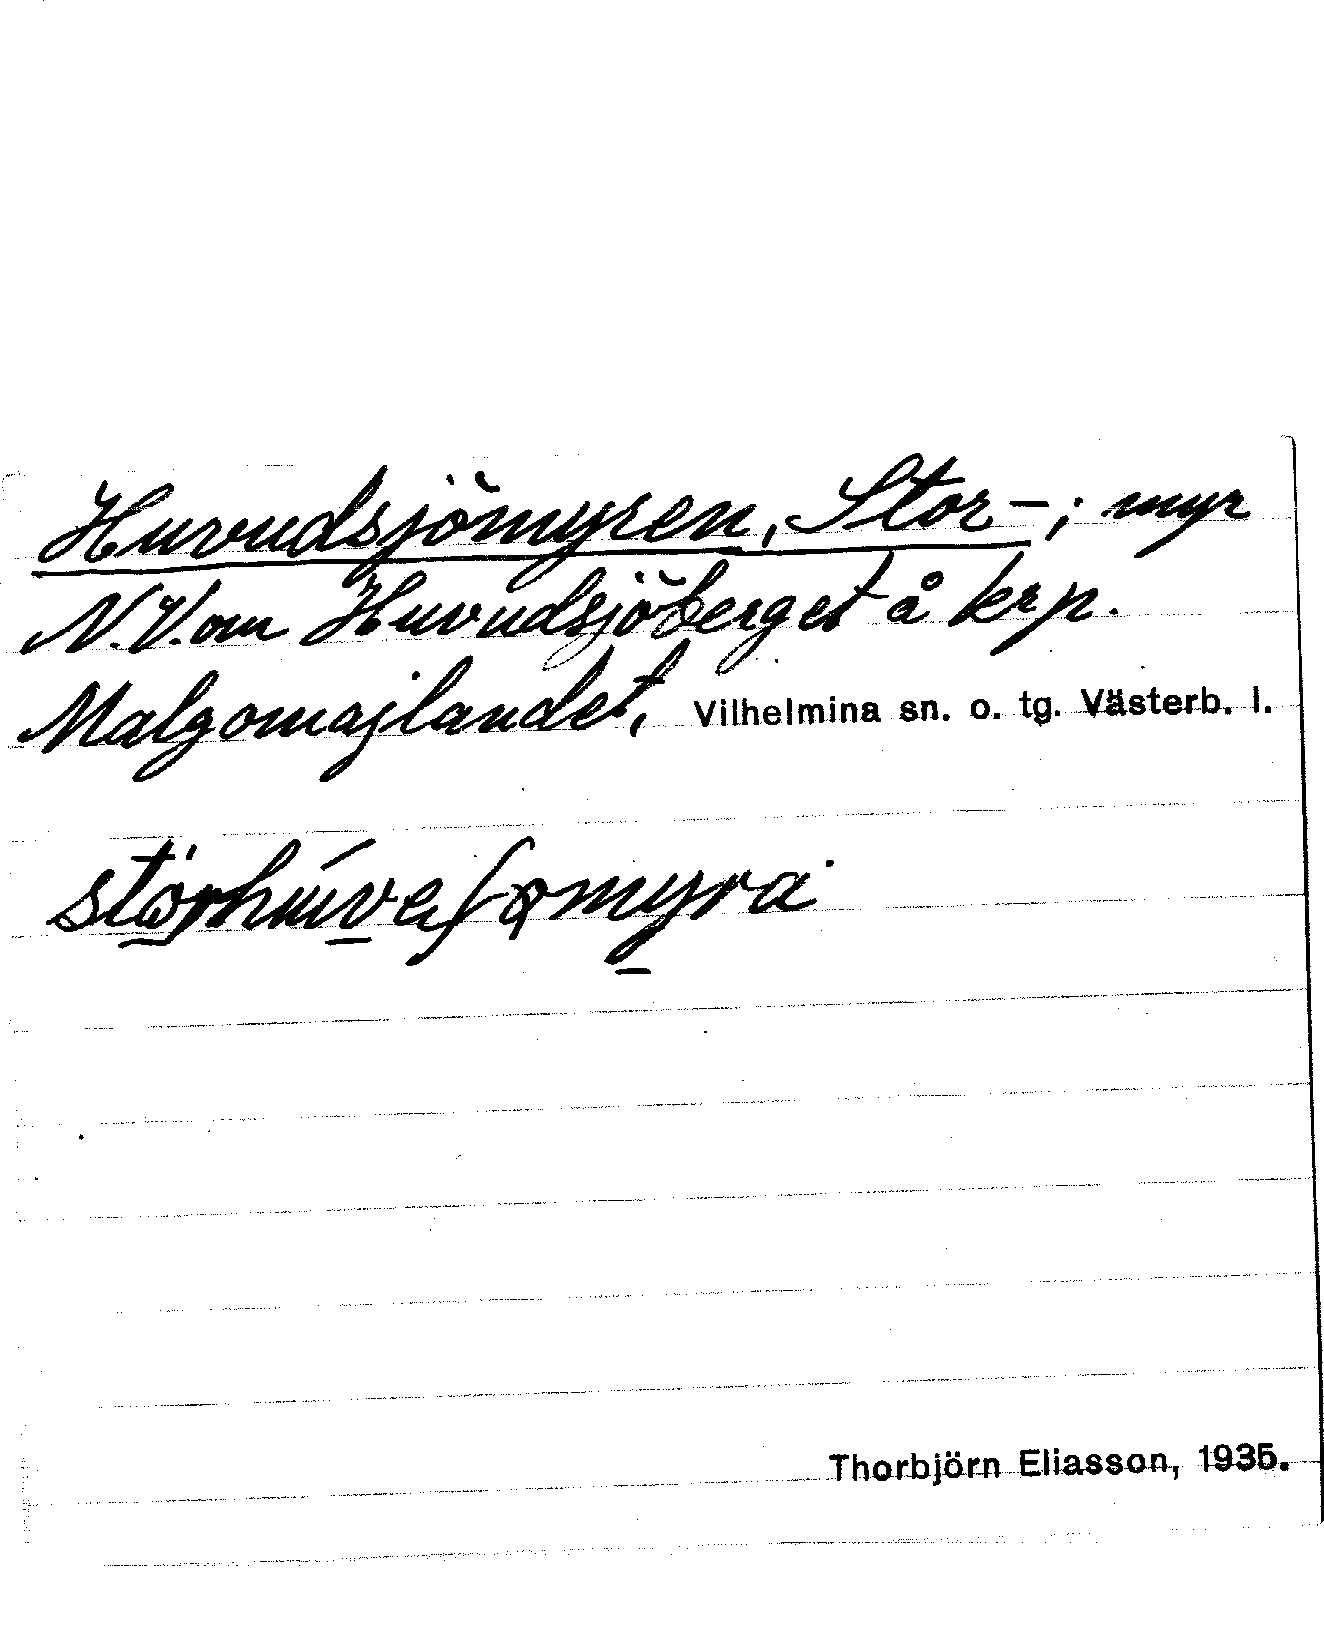 Huvudsjömyren, Stor-; myr
N.V. om Huvudsjöberget å krp.
Malgomajlandet, Vilhelmina sn. o. tg. Västerb. l.
Thorbjörn Eliasson, 1935.